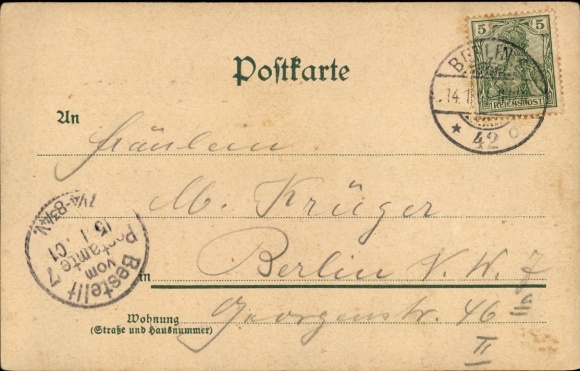 5 5
REICHSPOST
BERLIN
14.1
* 42 c
Postkarte
An
Fräulein
M. Krüger
in Berlin N. W. 7
Wohnung
(Straße und Hausnummer)
Georgenstr. 46 a
II
Bestellt
vom
Postamte 7
15.1.01
7¼-8¾V.